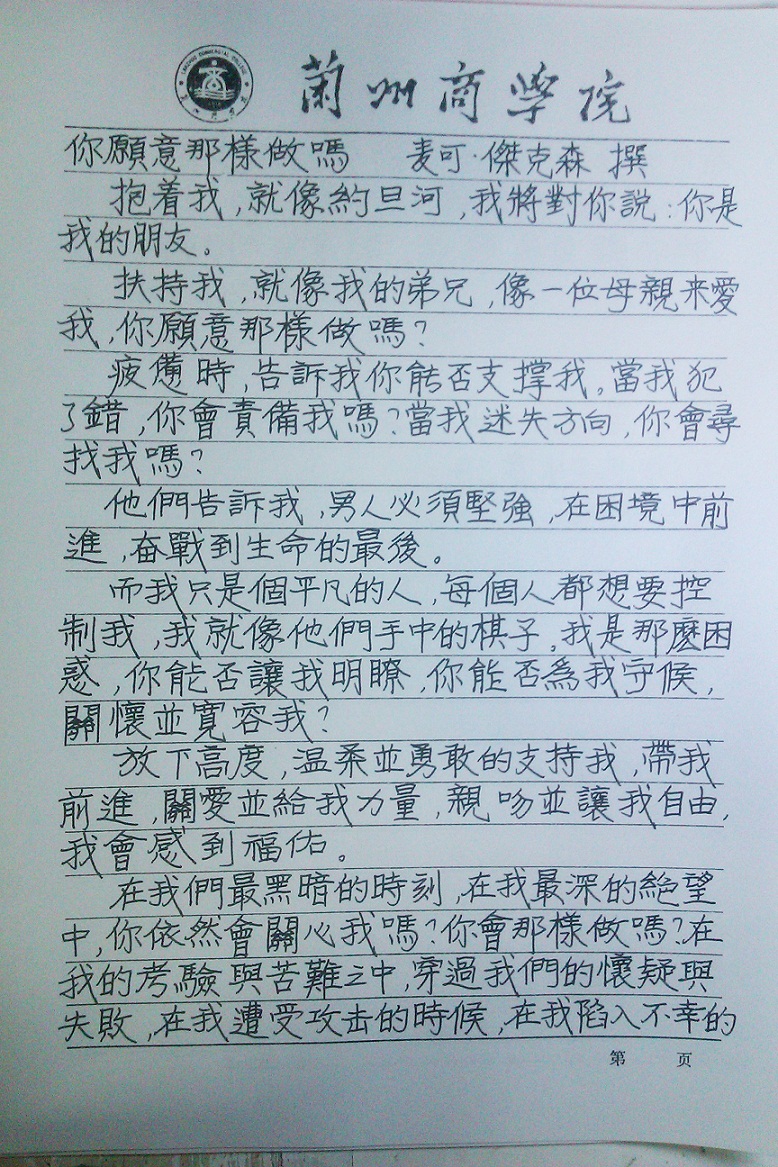 蘭州商學院
你願意那樣做嗎 麦可·傑克森 撰
抱着我,就像約旦河,我將對你說:你是
我的朋友。
扶持我,就像我的弟兄,像一位母親来愛
我,你願意那樣做嗎?
疲憊時,告訴我你能否支撑我。當我犯
了錯,你會責備我嗎?當我迷失方向,你會尋
找我嗎?
他們告訴我,男人必須堅強,在困境中前
進,奋戰到生命的最後。
而我只是個平凡的人,每個人都想要控
制我,我就像他們手中的棋子。我是那麼困
惑,你能否讓我明瞭,你能否為我守候,
關懷並寬容我?
放下高度,温柔並勇敢的支持我,帶我
前進,關愛並給我力量,親吻並讓我自由,
我會感到福佑。
在我們最黑暗的時刻,在我最深的絶望
中,你依然會關心我嗎?你會那樣做嗎?在
我的考驗與苦難之中,穿過我們的懷疑與
失敗,在我遭受攻击的時候,在我陷入不幸的
第 页